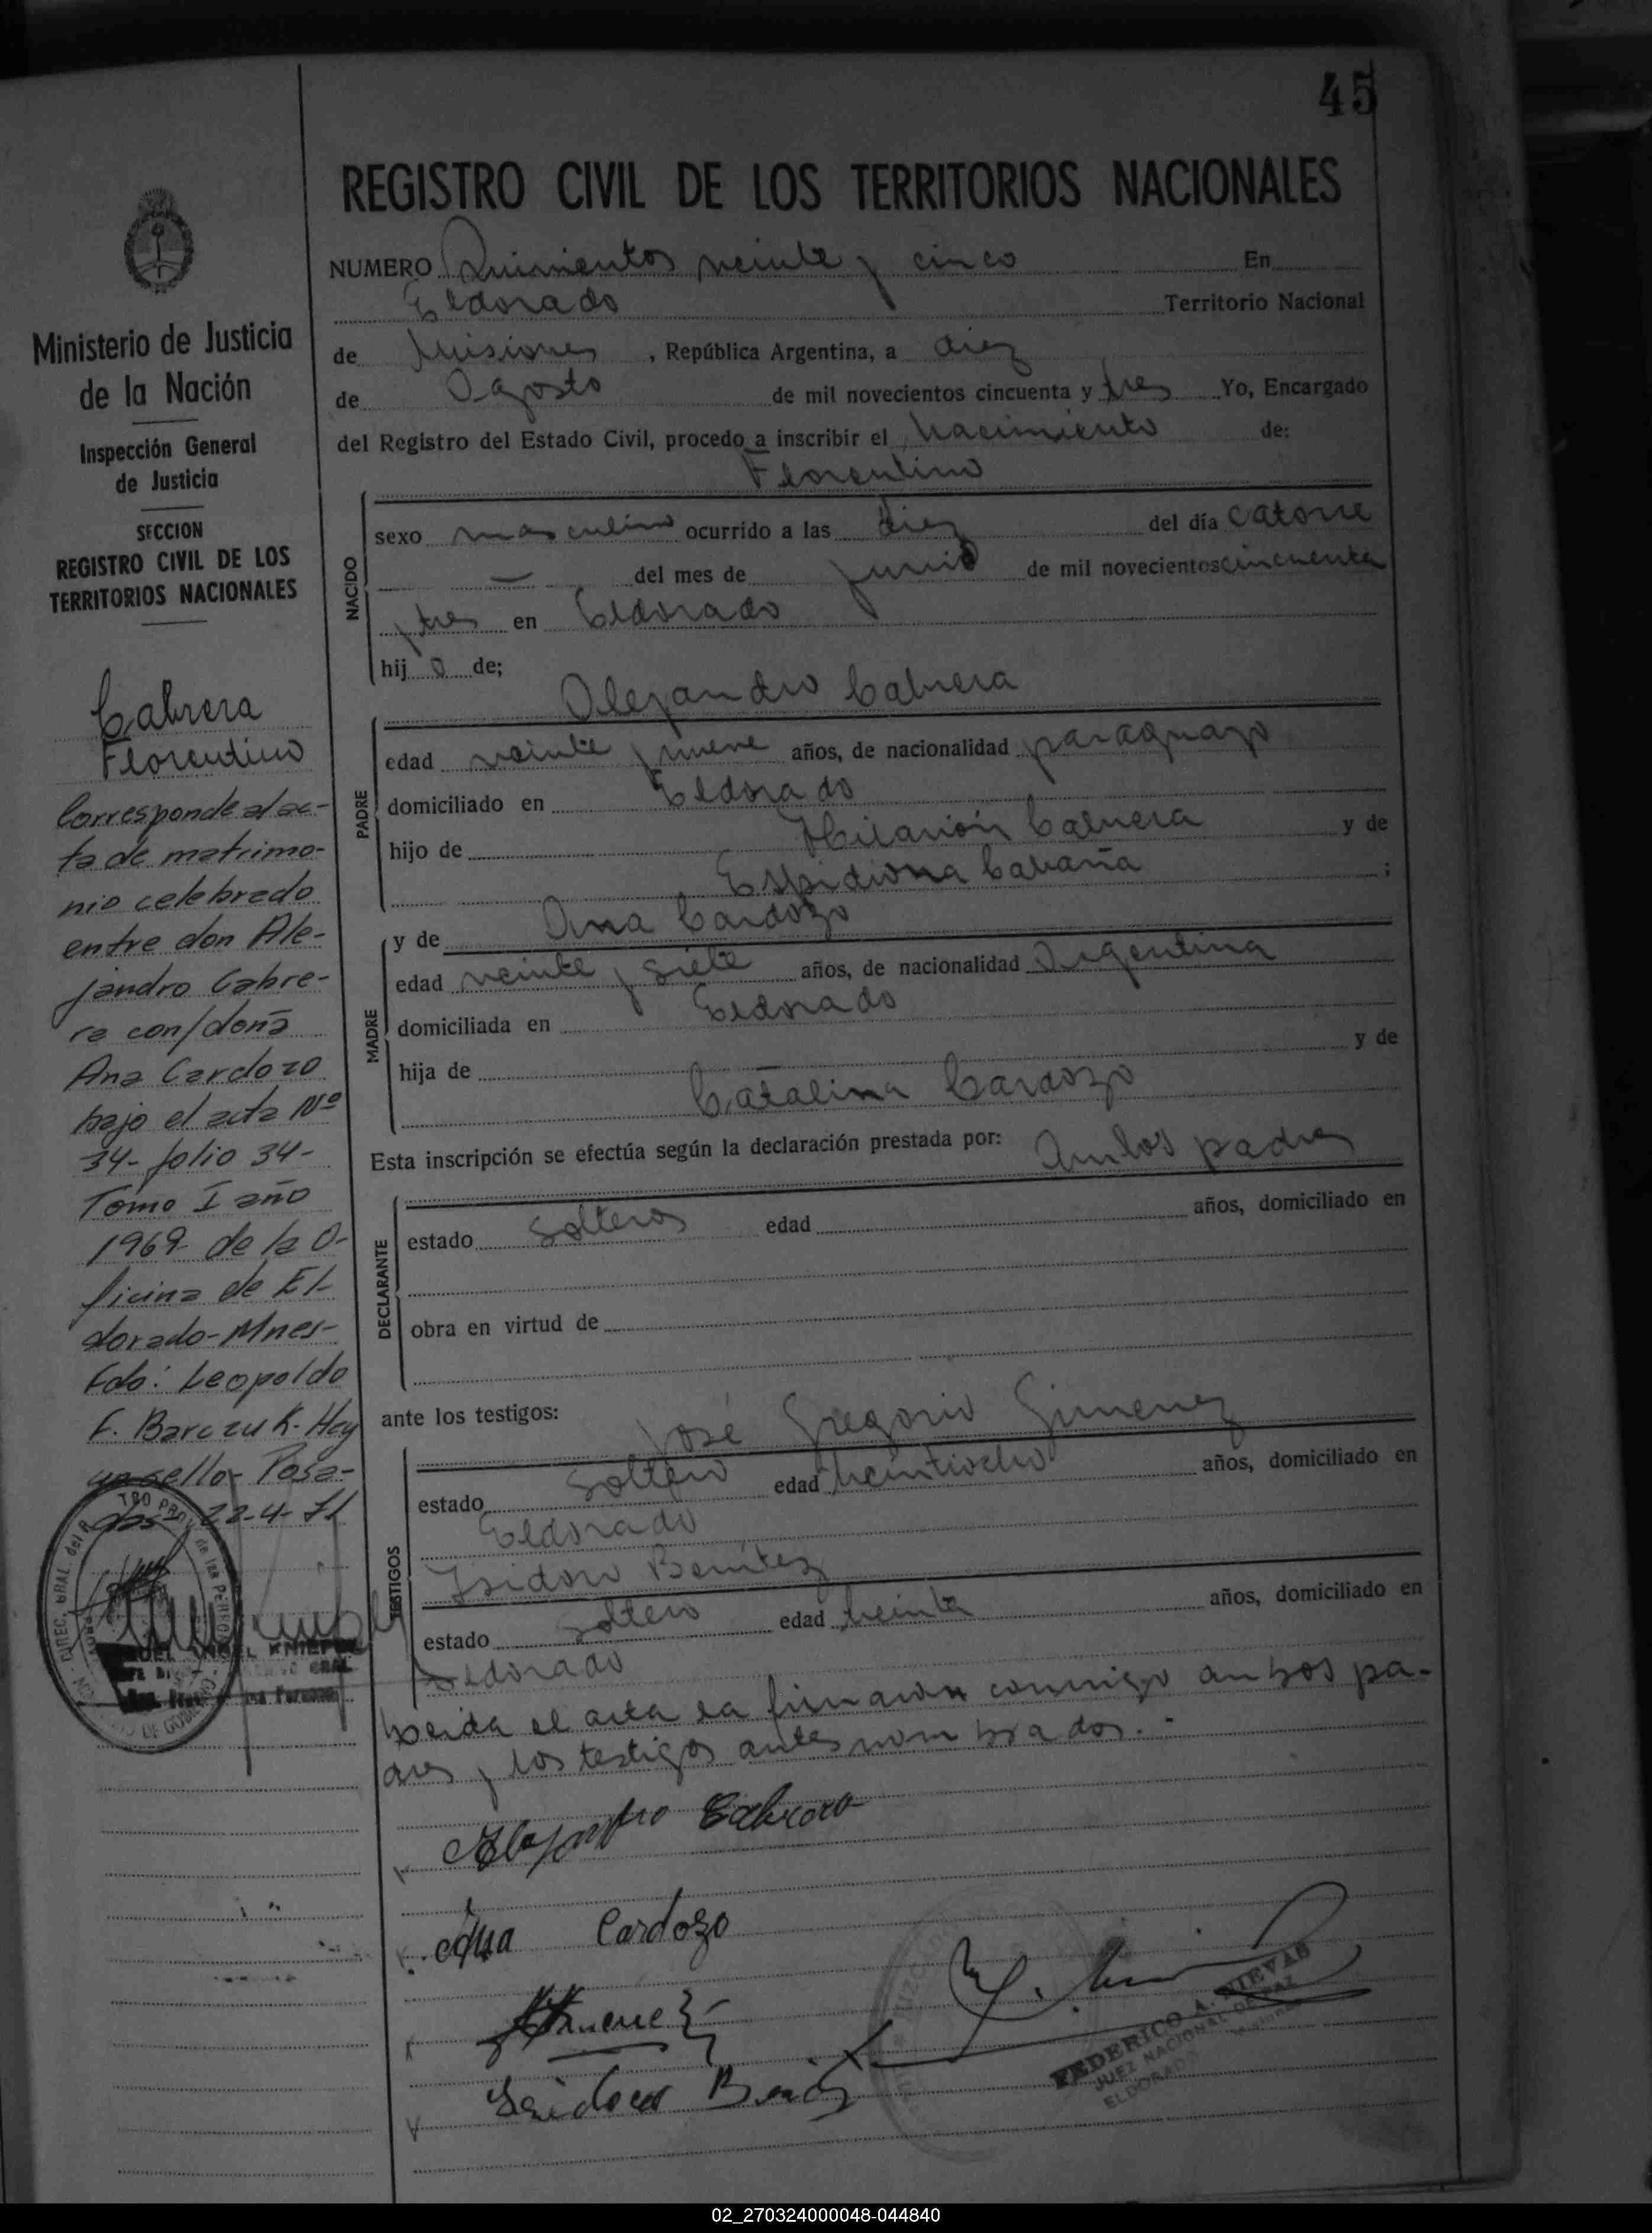 45
REGISTRO CIVIL DE LOS TERRITORIOS NACIONALES
NUMERO Quinientos veinte y cinco En
Eldorado Territorio Nacional
de Misiones, República Argentina, a diez
de Agosto de mil novecientos cincuenta y tres Yo, Encargado
del Registro del Estado Civil, procedo a inscribir el Nacimiento de:
Florentino
NACIDO
sexo masculino ocurrido a las diez del día catorce
— del mes de junio de mil novecientos cincuenta
y tres en Eldorado
hij o de;
Alejandro Cabrera
PADRE
edad veinte y nueve años, de nacionalidad paraguayo
domiciliado en Eldorado
hijo de Hilarión Cabrera y de
Espidiona Cabaña ;
MADRE
y de Ana Cardozo
edad veinte y siete años, de nacionalidad Argentina
domiciliada en Eldorado
hija de y de
Catalina Cardozo
Esta inscripción se efectúa según la declaración prestada por: Ambos padres
DECLARANTE
estado solteros edad años, domiciliado en
obra en virtud de
ante los testigos:
José Gregorio Gimenez
TESTIGOS
estado soltero edad veintiocho años, domiciliado en
Eldorado
Isidoro Benítez
estado soltero edad treinta años, domiciliado en
Eldorado
Leida el acta la firmaron conmigo ambos pa-
dres y los testigos antes nombrados.-
Alejandro Cabrera
Ana Cardozo
Gimenez
Isidoro Benitez
FEDERICO A. NIEVAS
JUEZ NACIONAL DE PAZ
ELDORADO Misiones
Ministerio de Justicia
de la Nación
Inspección General
de Justicia
SECCION
REGISTRO CIVIL DE LOS
TERRITORIOS NACIONALES
Cabrera
Florentino
Corresponde al ac-
ta de matrimo-
nio celebrado
entre don Ale-
jandro Cabre-
ra con/doña
Ana Cardozo
bajo el acta Nº
34- folio 34-
Tomo I año
1969 de la O-
ficina de El-
dorado-Mnes-
Fdo: Leopoldo
F. Barczuk. Hay
un sello- Posa-
das 22-4-71
02_270324000048-044840